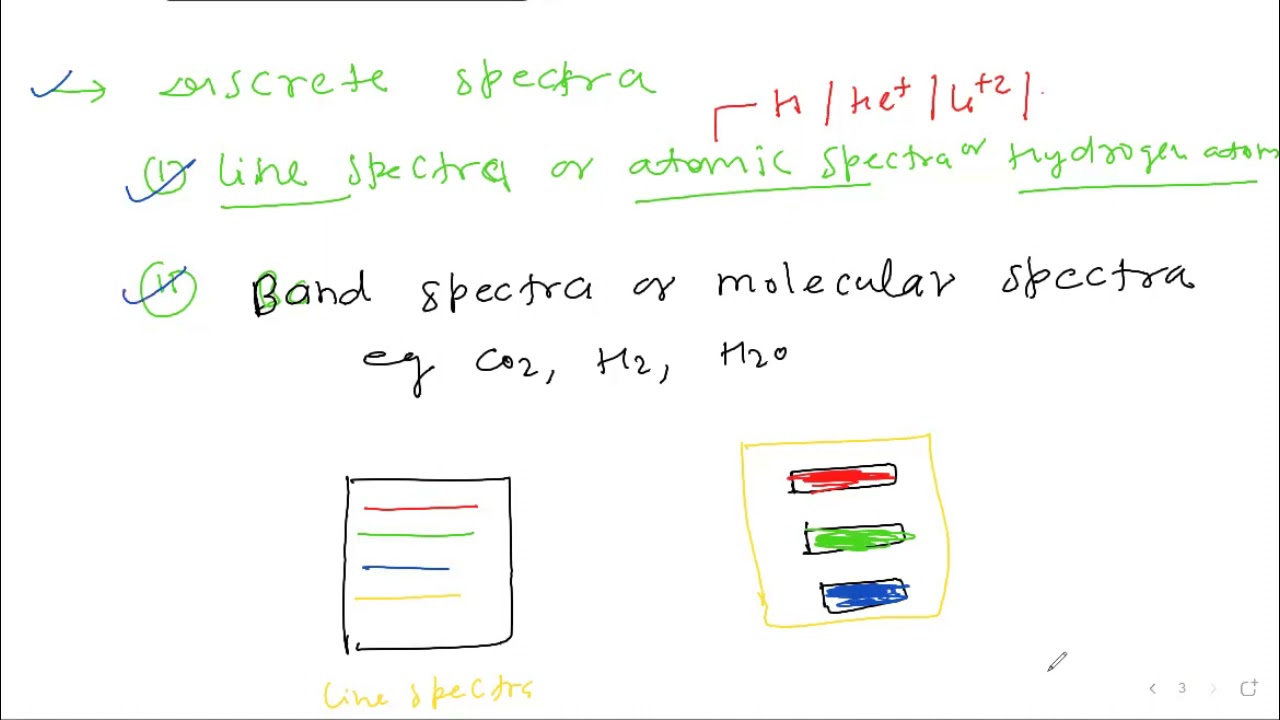 → Discrete spectra
H / He⁺ / Li⁺² / .
(i) line spectra or atomic spectra or Hydrogen atom
(ii) Band spectra or molecular spectra
eg CO₂, H₂, H₂O
line spectra
3